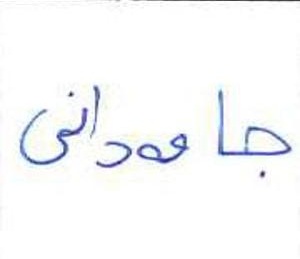 جامەدانی